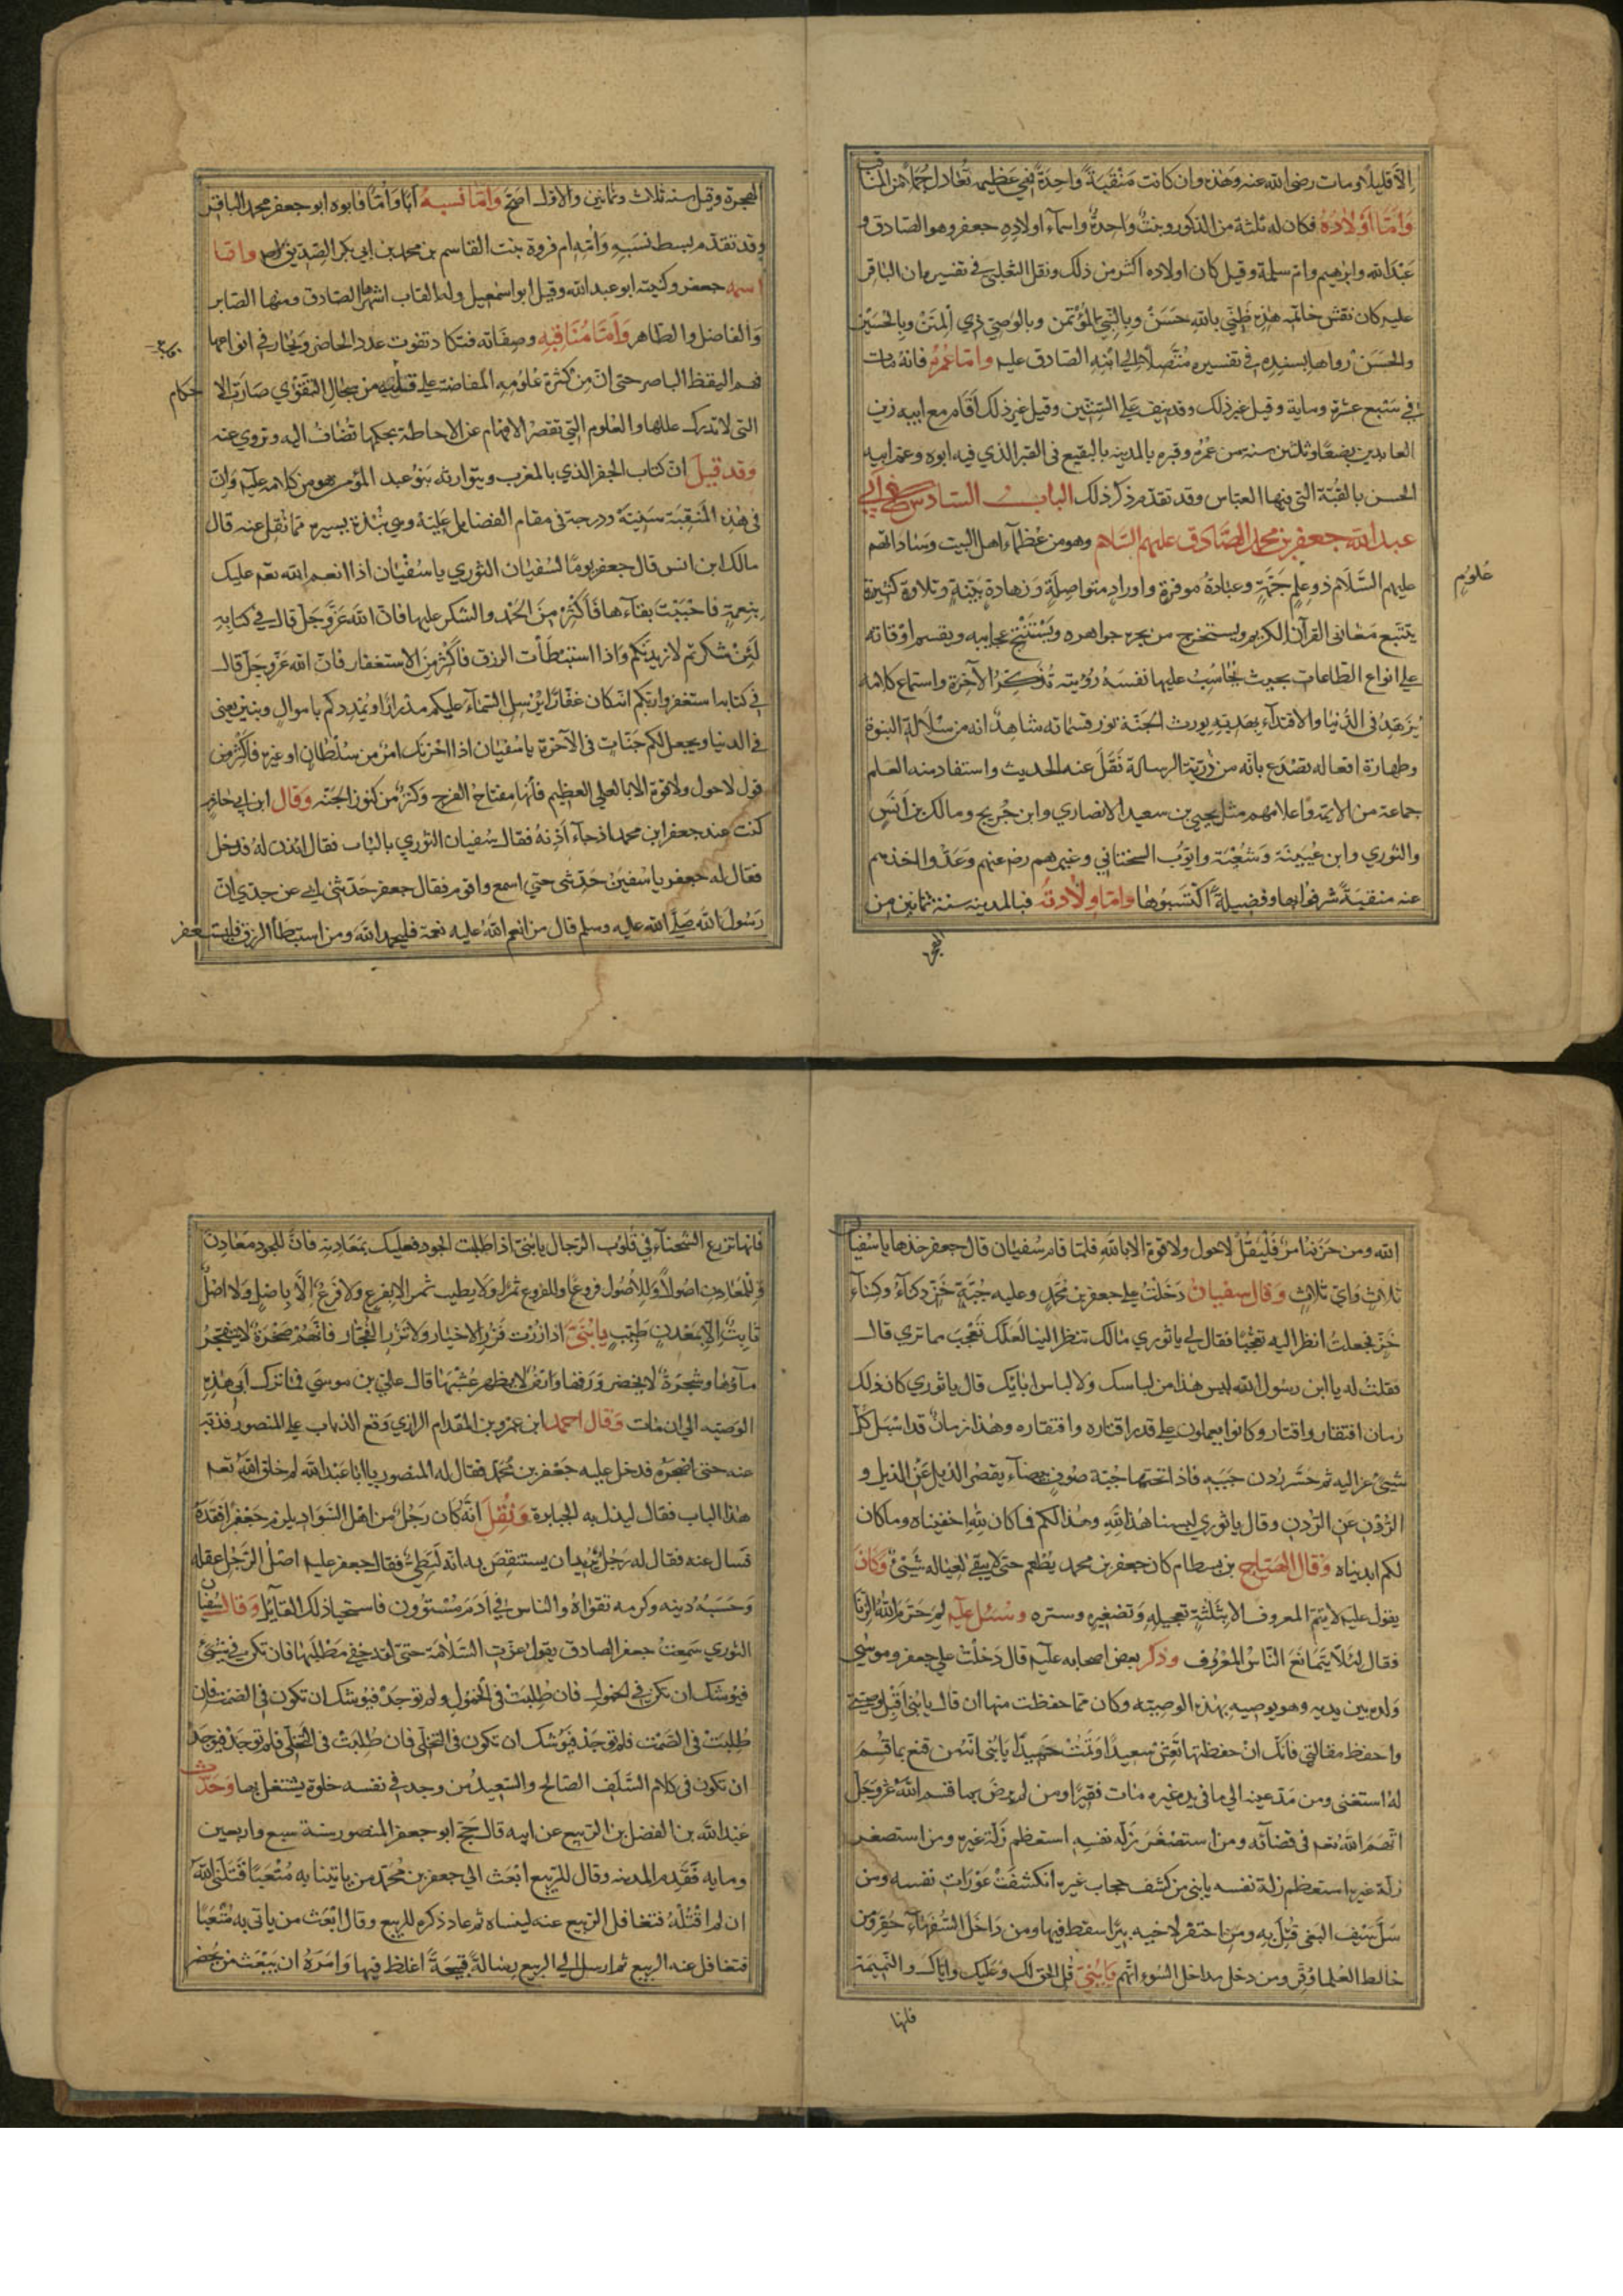 الا قليلا ومات رضى الله عنه وهذه وان كانت منقبة واحدة فهي عظيمة تعادل جملا من المناقب
واما اولاده فكان له ثلثة من الذكور وبنت واحدة واسماء اولاده جعفر وهو الصادق و
عبد الله وابرهيم وام سلمة وقيل كان اولاده اكثر من ذلك ونقل الثعلبي في تفسيره ان الباقر
عليه كان نقش خاتمه هذه ظني بالله حسن وبالنبي المؤتمن وبالوصي ذي المنن وبالحسين
والحسن رواها بسنده في تفسيره متصلا الي ابنه الصادق عليه واما عمره فانه مات
في سبع عشرة وماية وقيل غير ذلك وقد نيف علي الستين وقيل غير ذلك اقام مع ابيه زين
العابدين بضعا وثلثين سنة من عمره وقبره بالمدينه بالبقيع في القبر الذي فيه ابوه وعم ابيه
الحسن بالقبة التي فيها العباس وقد تقدم ذكر ذلك الباب السادس في ابي
عبد الله جعفر بن محمد الصادق عليهم السلام وهو من عظماء اهل البيت وساداتهم
عليهم السلام ذو علم جمة وعبادة موفرة واوراد متواصلة وزهادة بينة وتلاوة كثيرة
علوم
يتتبع معاني القرآن الكريم ويستخرج من بحره جواهره ويستنتج عجايبه ويقسم اوقاته
علي انواع الطاعات بحيث يحاسب عليها نفسه رؤيته تذكر الآخرة واستماع كلامه
يزهد في الدنيا والاقتداء بهديه يورث الجنة نور قسماته شاهد انه من سلالة النبوة
وطهارة افعاله تصدع بانه من ذرية الرسالة نقل عنه الحديث واستفاد منه العلم
جماعة من الايمة واعلامهم مثل يحيي بن سعيد الانصاري وابن جريج ومالك بن انس
والثوري وابن عيينة وشعبة وايوب السختياني وغيرهم رضي عنهم وعدوا اخذهم
عنه منقبة شرفوا بها وفضيلة اكتسبوها واما ولادته فبالمدينه سنة ثمانين من
الهجرة
الهجرة وقيل سنه ثلاث وثمانين والاول اصح واما نسبه ابا واما فابوه ابو جعفر محمد الباقر
وقد تقدم بسط نسبه وامه ام فروة بنت القاسم بن محمد بن ابي بكر الصديق واما
اسمه جعفر وكنيته ابو عبد الله وقيل ابو اسمعيل وله القاب اشهرها الصادق ومنها الصابر
والفاضل والطاهر واما مناقبه وصفاته فتكاد تفوت عدد الحاضر ويحار في انواعها
فهم اليقظ الباصر حتى ان من كثرة علومه المفاضة على قلبه من سجال التقوي صارت الا
حكام
التى لا تدرك عللها والعلوم التي تقصر الافهام عن الاحاطة بحكمها تضاف اليه وتروي عنه
وقد قيل ان كتاب الجفر الذي بالمغرب ويتوارثه بنو عبد المؤمن هو من كلامه عليه وان
في هذه المنقبة سنية ودرجة في مقام الفضايل علية وهي نبذة يسيرة مما نقل عنه قال
مالك ابن انس قال جعفر يوما لسفيان الثوري يا سفيان اذا انعم الله تعم عليك
بنعمة فاحببت بقآءها فاكثر من الحمد والشكر عليها فان الله عز وجل قال في كتابه
لئن شكرتم لازيدنكم واذا استبطأت الرزق فاكثر من الاستغفار فان الله عز وجل قال
في كتابه استغفروا ربكم انه كان غفارا يرسل السمآء عليكم مدرارا ويمددكم باموال وبنين يعني
في الدنيا ويجعل لكم جنات في الآخرة يا سفيان اذا احزنك امر من سلطان او غيره فاكثر من
قول لا حول ولا قوة الا بالله العلي العظيم فأنها مفتاح الفرج وكنز من كنوز الجنة وقال ابن ابي حازم
كنت عند جعفر ابن محمد اذ جآء آذنه فقال سفيان الثوري بالباب فقال ائذن له فدخل
فقال له جعفر يا سفين حدثني حتي اسمع واقوم فقال جعفر حدثني ابي عن جدي ان
رسول الله صلي الله عليه وسلم قال من انعم الله عليه نعمة فليحمد الله ومن استبطأ الرزق فليستغفر
الله ومن حزنه امر فليقل لا حول ولا قوة الا بالله فلما قام سفيان قال جعفر خذها يا سفيان
ثلاث واي ثلاث وقال سفيان دخلت علي جعفر بن محمد وعليه جبة خز دكنآء وكسآء
خز فجعلت انظر اليه تعجبا فقال لي يا ثوري مالك تنظر الينا لعلك تعجب مما تري قال
فقلت له يا ابن رسول الله ليس هذا من لباسك ولا لباس ابائك قال يا ثوري كان ذلك
زمان افتقار واقتار وكانوا يعملون علي قدر اقتاره وافتقاره وهذا زمان قد اسبل كل
شيئ عزاليه ثم حسر ردن جبته فاذا تحتها جبة صوف بيضآء يقصر الذيل عن الذيل و
الردن عن الردن وقال يا ثوري لبسنا هذا لله وهذا لكم فما كان لله اخفيناه وما كان
لكم ابديناه وقال الهياج بن بسطام كان جعفر بن محمد يطعم حتي لا يبقي لعياله شيئ وكان
يقول عليه لا يتم المعروف الا بثلثة تعجيله وتصغيره وستره وسئل عليه لم حرم الله الربا
فقال لئلا يتمانع الناس المعروف وذكر بعض اصحابه عليه قال دخلت علي جعفر وموسي
ولده بين يديه وهو يوصيه بهذه الوصية وكان مما حفظت منها ان قال يا بني اقبل وصيتي
واحفظ مقالتي فانك ان حفظتها تعش سعيدا وتمت حميدا يا بني انه من قنع بما قسم
له استغنى ومن مد عينه الي ما في يد غيره مات فقيرا ومن لم يرض بما قسم الله عز وجل
اتهم الله تعم في قضآئه ومن استصغر زلة نفسه استعظم زلة غيره ومن استصغر
زلة غيره استعظم زلة نفسه يا بني من كشف حجاب غيره انكشفت عورات نفسه ومن
سل سيف البغي قتل به ومن احتفر لاخيه بئرا سقط فيها ومن داخل السفهآء حقر ومن
خالط العلما وقر ومن دخل مداخل السوء اتهم يا بني قل الحق لك وعليك واياك والنميمة
فانها
فانها تزرع الشحنآء في قلوب الرجال يا بني اذا طلبت الجود فعليك بمعادنه فان للجود معادن
وللمعادن اصولا وللاصول فروعا وللفروع ثمرا ولا يطيب ثمر الا بفرع ولا فرع الا باصل ولا اصل
ثابت الا بمعدن طيب يا بني اذا زرت فزر الاخيار ولا تزر الفجار فانهم صخرة لا يتفجر
مآؤها وشجرة لا يخضر ورقها وارض لا يظهر عشبها قال علي بن موسي فما ترك ابي هذه
الوصيه الي ان مات وقال احمد ابن عمرو بن المقدام الرازي وقع الذباب علي المنصور فذبه
عنه حتى اضجره فدخل عليه جعفر بن محمد فقال له المنصور يا ابا عبد الله لم خلق الله تعم
هذا الباب فقال ليذل به الجبابرة ونقل انه كان رجل من اهل السواد يلزم جعفرا ففقده
فسال عنه فقال له رجل يريد ان يستنقص به انه لنبطي فقال جعفر عليه اصل الرجل عقله
وحسبه دينه وكرمه تقواه والناس في آدم مستوون فاستحيا ذلك القآئل وقال سفيان
الثوري سمعت جعفر الصادق يقول عزت السلامة حتى لقد خفي مطلبها فان تكن في شيئ
فيوشك ان تكون في الخمول فان طلبت في الخمول ولم توجد فيوشك ان تكون في الصمت فان
طلبت في الصمت فلم توجد فيوشك ان تكون في التخلي فان طلبت في التخلي فلم توجد فيوجد
ان تكون في كلام السلف الصالح والسعيد من وجد في نفسه خلوة يشتغل بها وحدث
عبد الله بن الفضل بن الربيع عن ابيه قال حج ابو جعفر المنصور سنة سبع واربعين
وماية فقدم المدينه وقال للربيع ابعث الي جعفر بن محمد من ياتينا به متعبا قتلني الله
ان لم اقتله فتغافل الربيع عنه لينساه ثم عاد ذكره للربيع وقال ابعث من ياتي به متعبا
فتغافل عنه الربيع ثم ارسل الي الربيع رسالة قبيحة اغلظ فيها وامره ان يبعث من يحضر